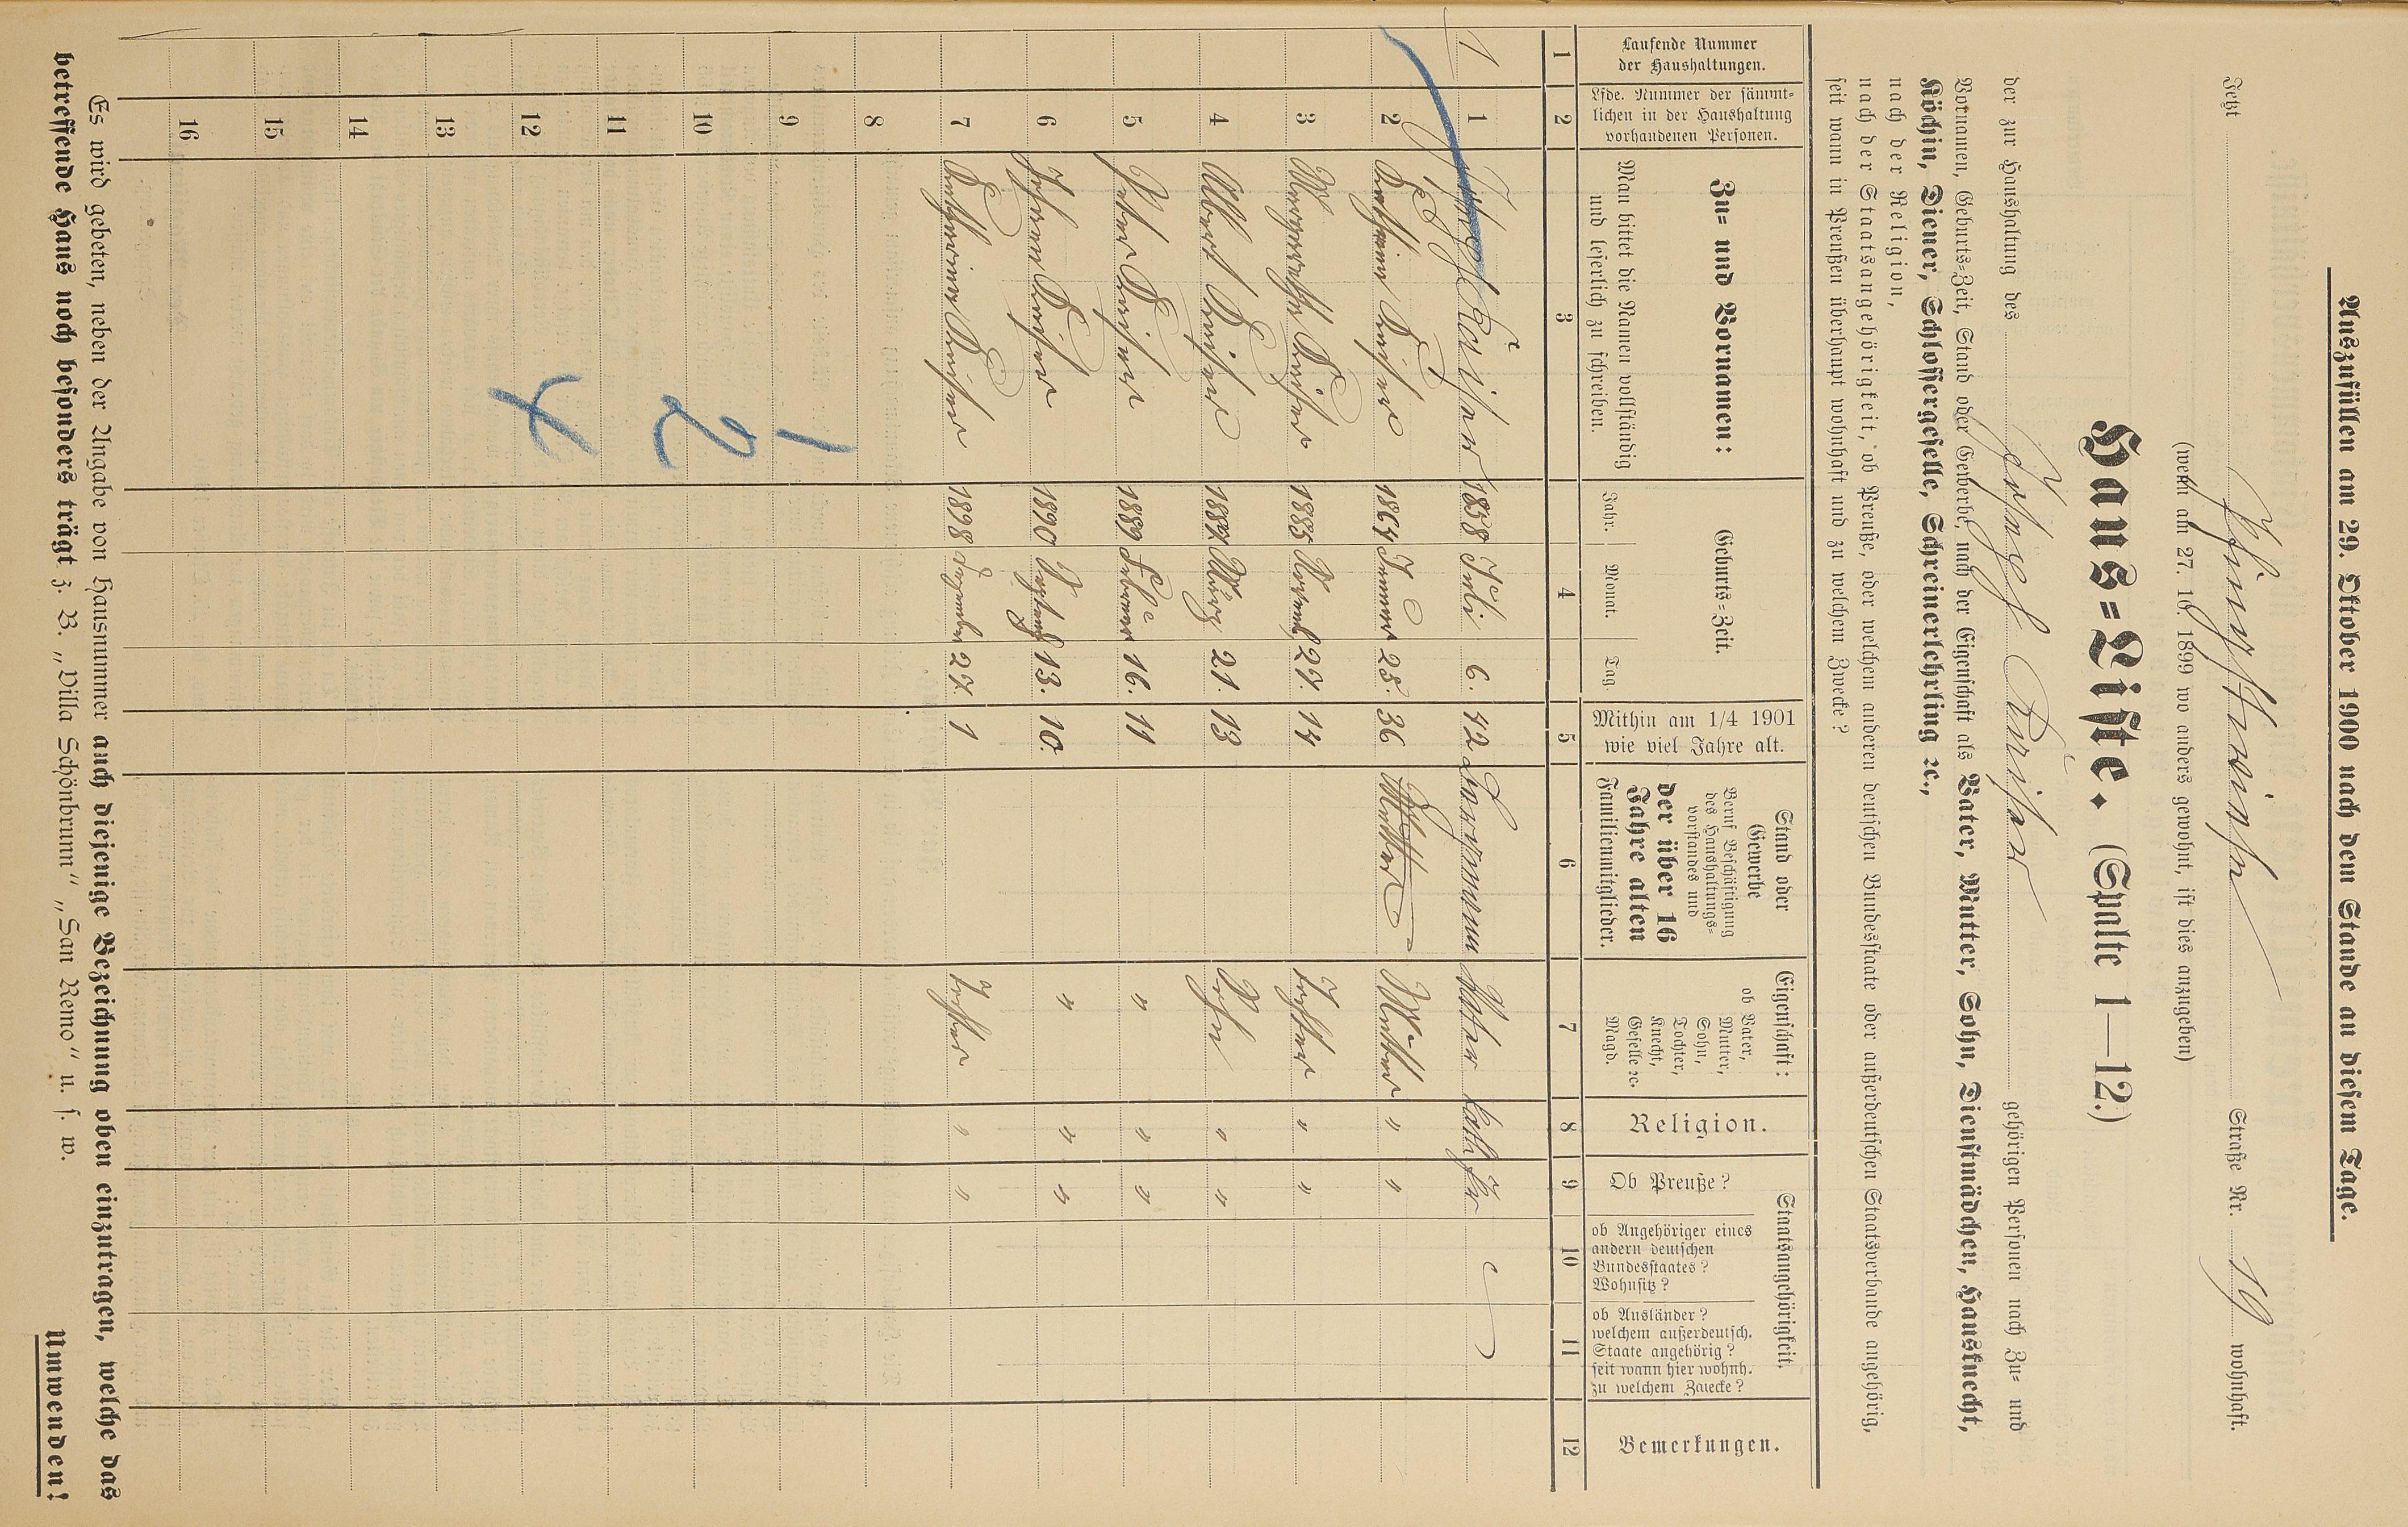 Auszufüllen am 29. Oktober 1900 nach dem Stande an diesem Tage.
Jetzt Straße Nr. 19 wohnhaft.
(wenn am 27. 10. 1899 wo anders gewohnt, ist dies anzugeben)
Haus-Liste. (Spalte 1—12.)
der zur Haushaltung des Joseph gehörigen Personen nach Zu- und
Vornamen, Geburts-Zeit, Stand oder Gewerbe, nach der Eigenschaft als Vater, Mutter, Sohn, Dienstmädchen, Hausknecht,
Köchin, Diener, Schlossergeselle, Schreinerlehrling ꝛc.,
nach der Religion,
nach der Staatsangehörigkeit, ob Preuße, oder welchem anderen deutschen Bundesstaate oder außerdeutschen Staatsverbande angehörig,
seit wann in Preußen überhaupt wohnhaft und zu welchem Zwecke?
Laufende Nummer der Haushaltungen.
Lfde. Nummer der sämmt- lichen in der Haushaltung vorhandenen Personen.
Zu- und Vornamen:
Man bittet die Namen vollständig und leserlich zu schreiben.
Geburts-Zeit.
Jahr. Monat. Tag.
Mithin am 1/4 1901 wie viel Jahre alt.
Stand oder Gewerbe
Beruf Beschäftigung des Haushaltungs- vorstandes und
der über 16 Jahre alten Familienmitglieder.
Eigenschaft:
ob Vater, Mutter, Sohn, Tochter, Knecht, Geselle ꝛc. Magd.
Religion.
Staatsangehörigkeit.
Ob Preuße?
ob Angehöriger eines andern deutschen Bundesstaates? Wohnsitz?
ob Ausländer? welchem außerdeutsch. Staate angehörig? seit wann hier wohnh. zu welchem Zwecke?
Bemerkungen.
1 2 3 4 5 6 7 8 9 10 11 12
1 1 Joseph 1858 Juli 6. 42 Bergmann Vater kath ja
2 1864 Januar 28. 36 Mutter Mutter " "
3 Margaretha 1885 Novemb 27. 14 Tochter " "
4 Albert 1887 März 21. 13 Sohn " "
5 Peter 1889 Februar 16. 11 " " "
6 Johann 1890 13. 10. " " "
7 1898 Dezember 27. 1 Tochter " "
8
9 1
10 2
11
12 4
13
14
15
16
Es wird gebeten, neben der Angabe von Hausnummer auch diejenige Bezeichnung oben einzutragen, welche das
betreffende Haus noch besonders trägt z. B. „Villa Schönbrunn“ „San Remo“ u. s. w.
Umwenden!